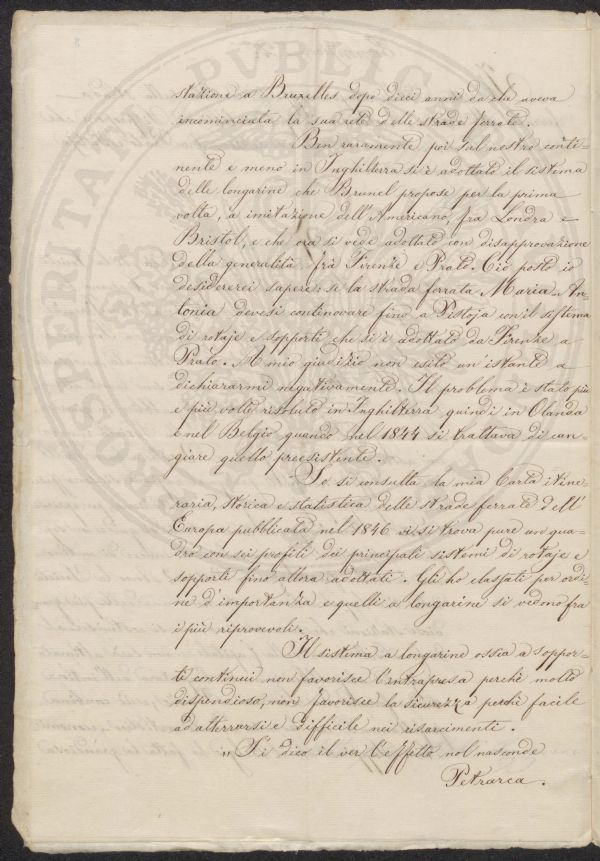 stazione a Bruxelles dopo dieci anni da che aveva
incominciata la sua rete delle strade ferrate.
Ben raramente poi sul nostro conti-
nente e meno in Inghilterra si è adottato il sistema
delle longarine che Brunel propose per la prima
volta, a imitazione dell'Americano, fra Londra e
Bristol, e che ora si vede adottato con disapprovazione
della generalità frà Firenze e Prato. Ciò posto io
desidererei sapere: se la strada ferrata Maria An-
tonia devesi continovare fino a Pistoja con il sistema
di rotaje e sopporti che si è adottato da Firenze a
Prato. A mio giudizio non esito un'istante a
dichiararmi negativamente. Il problema è stato più
e più volte risoluto in Inghilterra quindi in Olanda
e nel Belgio quando nel 1844 si trattava di can-
giare quello preesistente.
Se si consulta la mia Carta itine-
raria, storica e statistica delle strade ferrate dell'
Europa pubblicata nel 1846 vi si trova pure un qua-
dro con sei profili dei principali sistemi di rotaje e
sopporti fino allora adottati. Gli ho classati per ordi-
ne d'importanza e quelli a longarine si vedono fra
i più riprovevoli.
Il sistema a longarine ossia a soppor-
ti continui non favorisce l'intrapresa perchè molto
dispendioso, non favorisce la sicurezza perchè facile
ad atterrarsi e difficile nei risarcimenti.
„ S'i dico il ver l'effetto nol nasconde
Petrarca.
PVBLIC